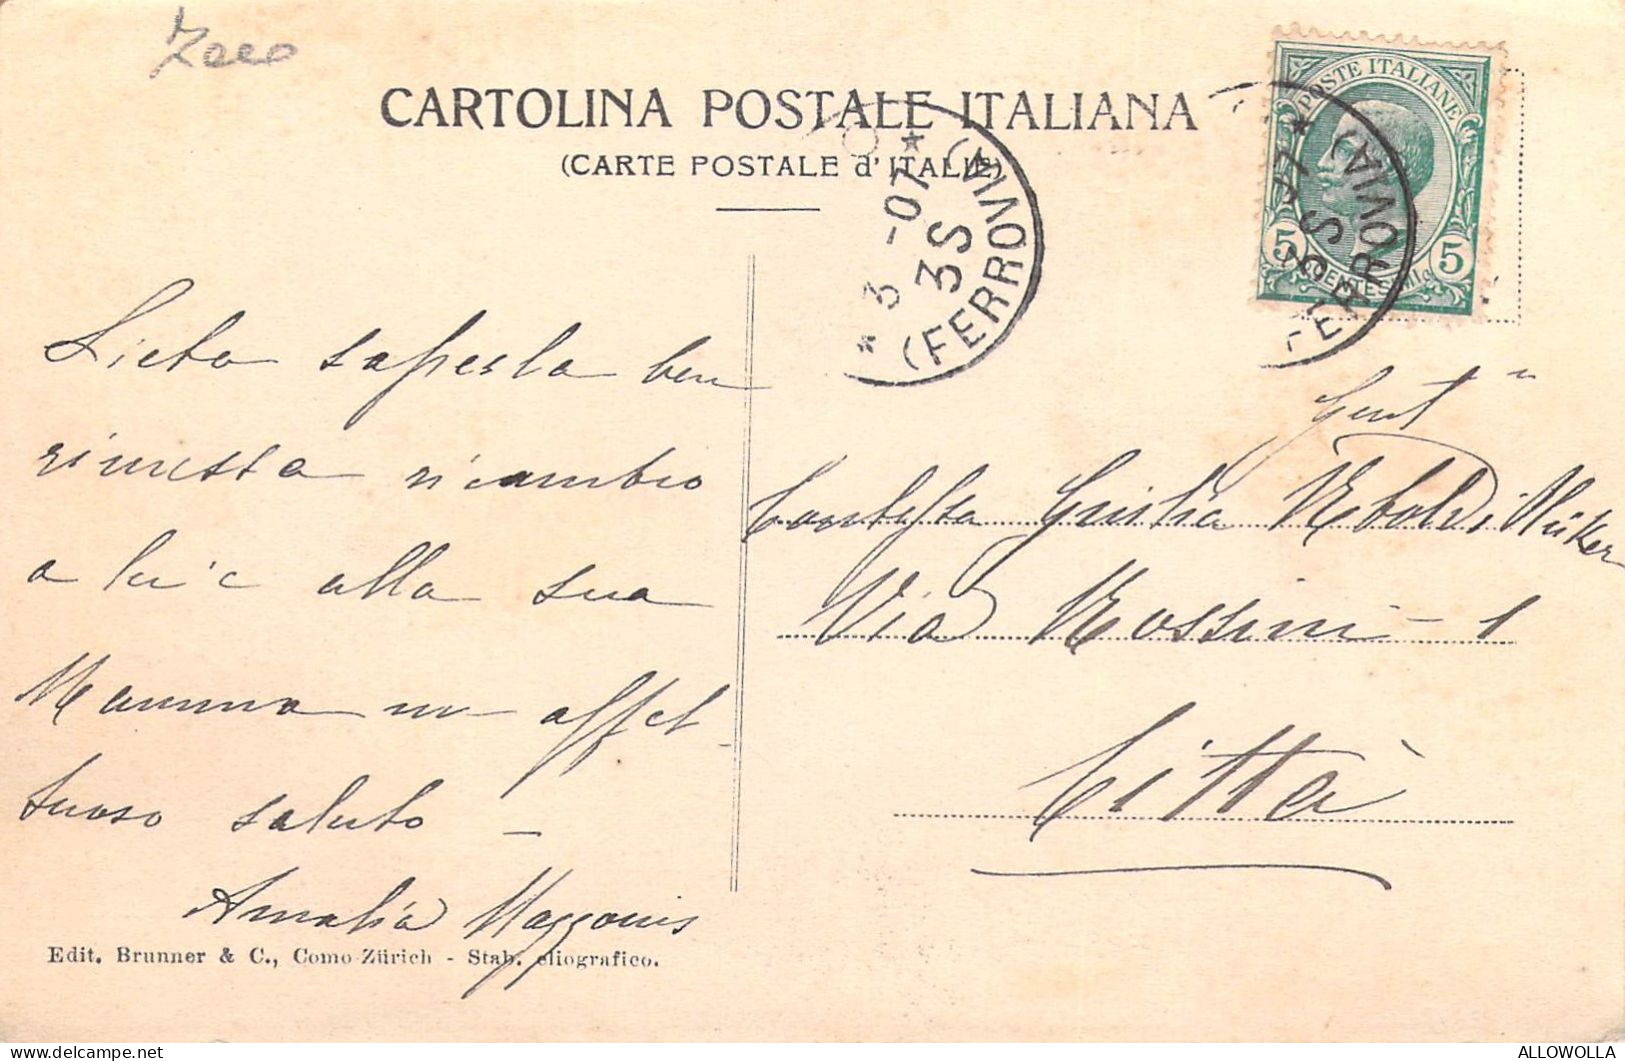 CARTOLINA POSTALE ITALIANA
(CARTE POSTALE d'ITALIE)
POSTE ITALIANE
5 CENTESIMI 5
* 3 -07 *
3S
(FERROVIA)
(FERROVIA)
Lieta saperla ben
rimessa ricambio
a lei e alla sua
Mamma un affet
tuoso saluto —
Amalia Mazzonis
Gent
Contessa Giulia Reboldi
Via Rossini - 1
Città
Edit. Brunner & C., Como-Zürich - Stab. eliografico.
ALLOWOLLA